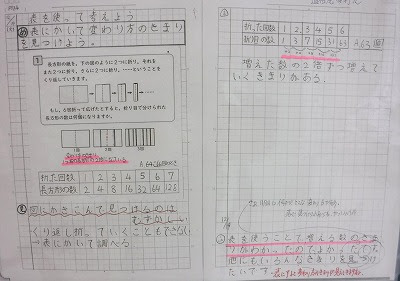 表を使って考えよう
め 表にかいて変わり方のきまり
を見つけよう。
1
長方形の紙を、下の図のように2つに折り、それを
また2つに折り、さらに2つに折り、……ということを
くり返していきます。
もし、6回折って広げたとすると、折り目で分けられた
長方形の数は何個になりますか。
1回 2回 3回
A 64こ
折た回数 1 2 3 4 5 6 7
長方形の数 2 4 8 16 32 64 128
図にかきこんで見つけるのは
むずかしい
くり返し折っていくこともできない
→表にかいて調べる
折た回数 1 2 3 4 5 6
折り目の数 1 3 7 15 31 63 A 63個
増えた数の2倍ずつ増えて
いくきまりがある。
表を使うことで増える数のきま
りがわかったのでよかったです。
他にもいろんなきまりを見つけ
たいです。